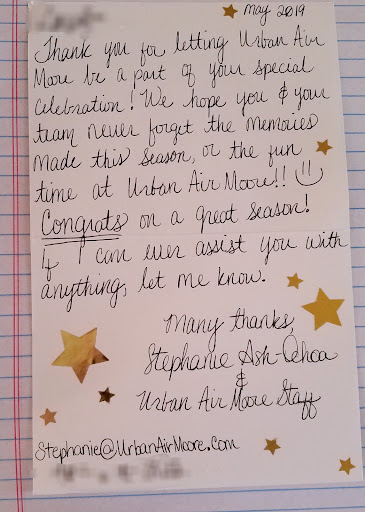 May 2019
Thank you for letting Urban Air
Moore be a part of your special
celebration! We hope you & your
team never forget the memories
made this season, or the fun
time at Urban Air Moore!!
Congrats on a great season!
If I can ever assist you with
anything, let me know.
Many thanks,
Stephanie Ash-Ochoa
&
Urban Air Moore Staff
Stephanie@UrbanAirMoore.com